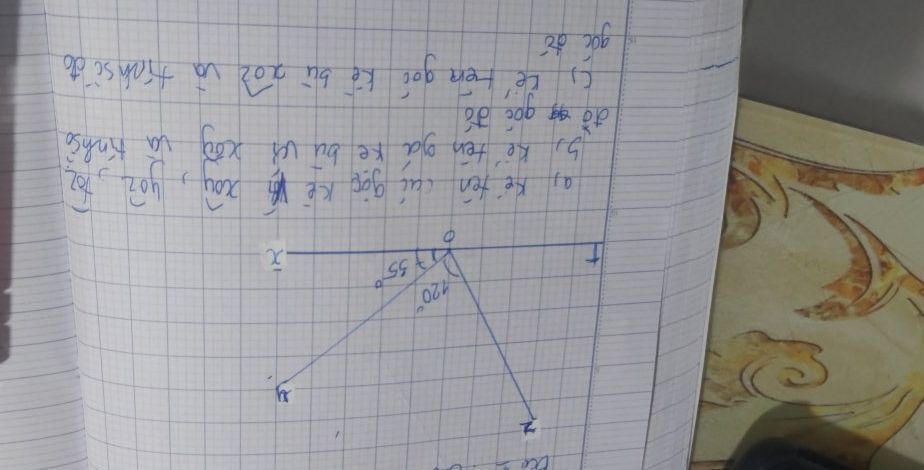 z
y
120°
35°
t
O
x
a, kể tên các góc kề với xOy, yOz, tOz,
b, kể tên gó kề bù với xOy và tính số
đo góc đó
c, kể tên gói kề bù xOz và tính số đo
góc đó